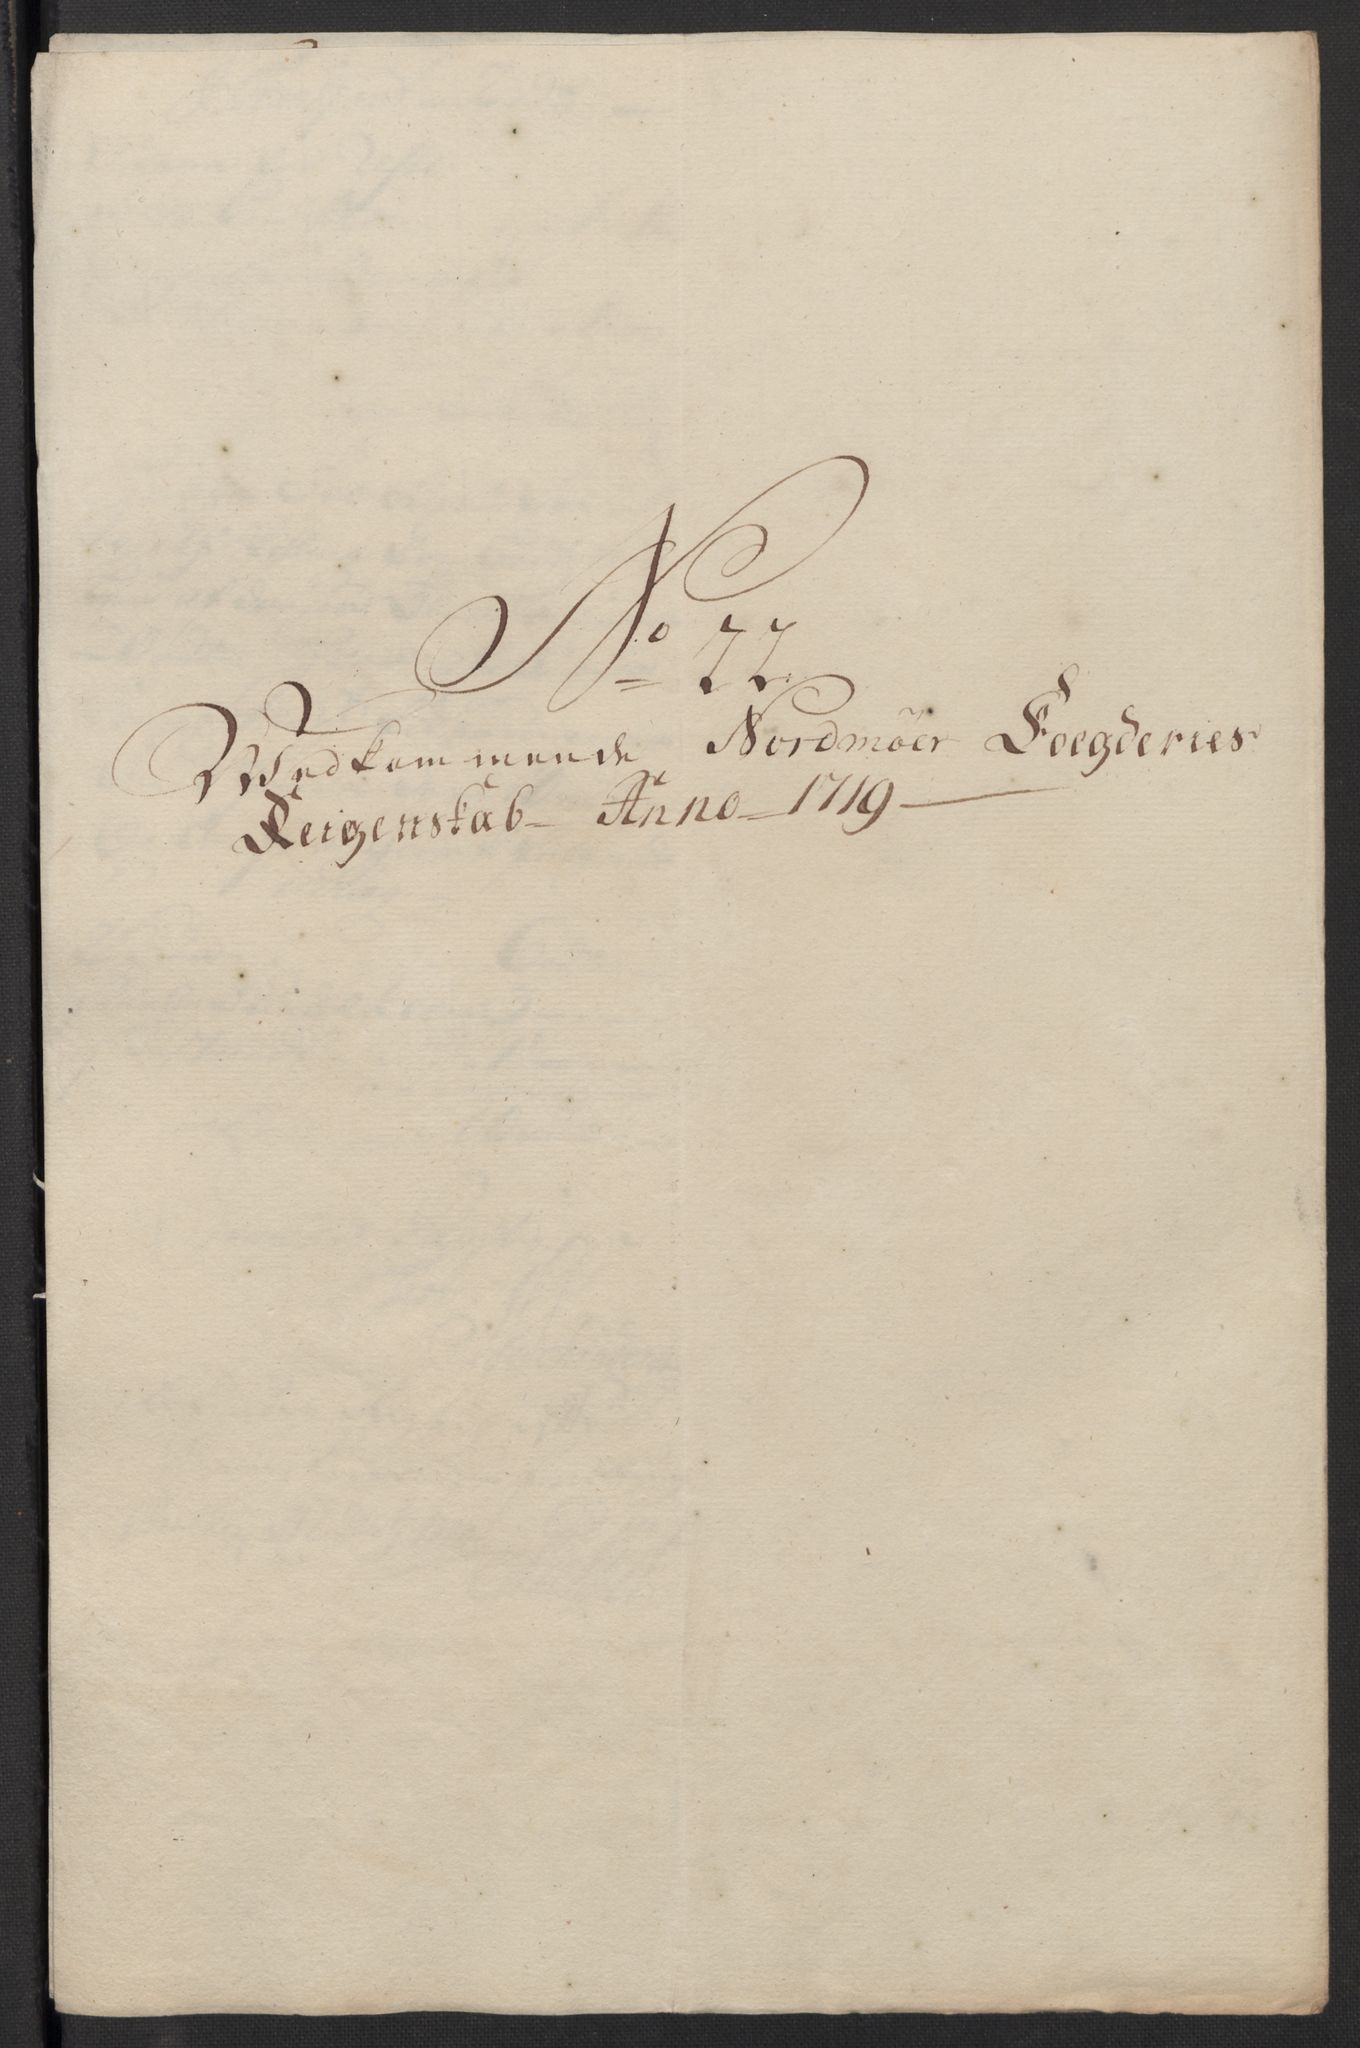 No 22
Wedkommende Nordmöer Foegderies
Reigenskab Anno 1719